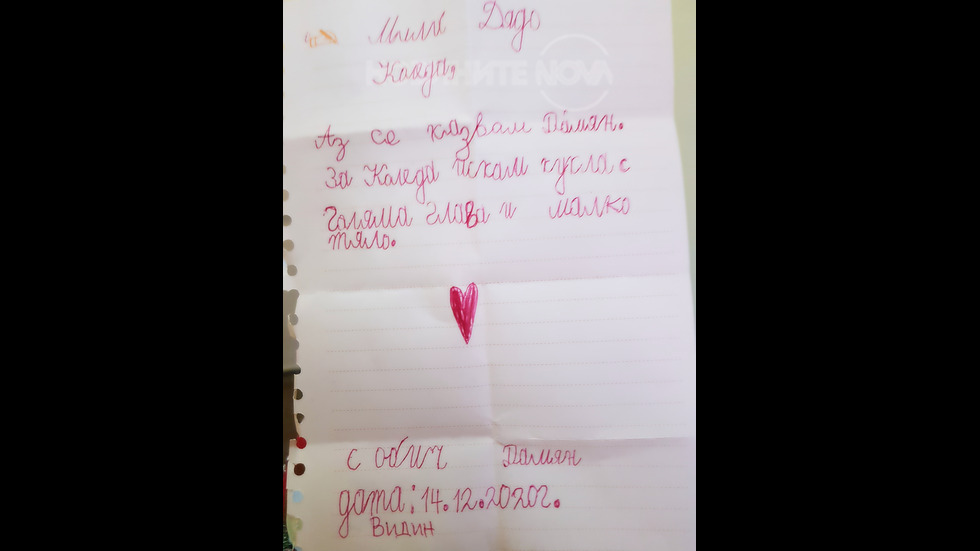 Мили Дядо
Коледа,
Аз се казвам Дамян.
За Коледа искам кукла с
голяма глава и малко
тяло.
с обич Дамян
дата: 14.12.2020г.
Видин
NOVA